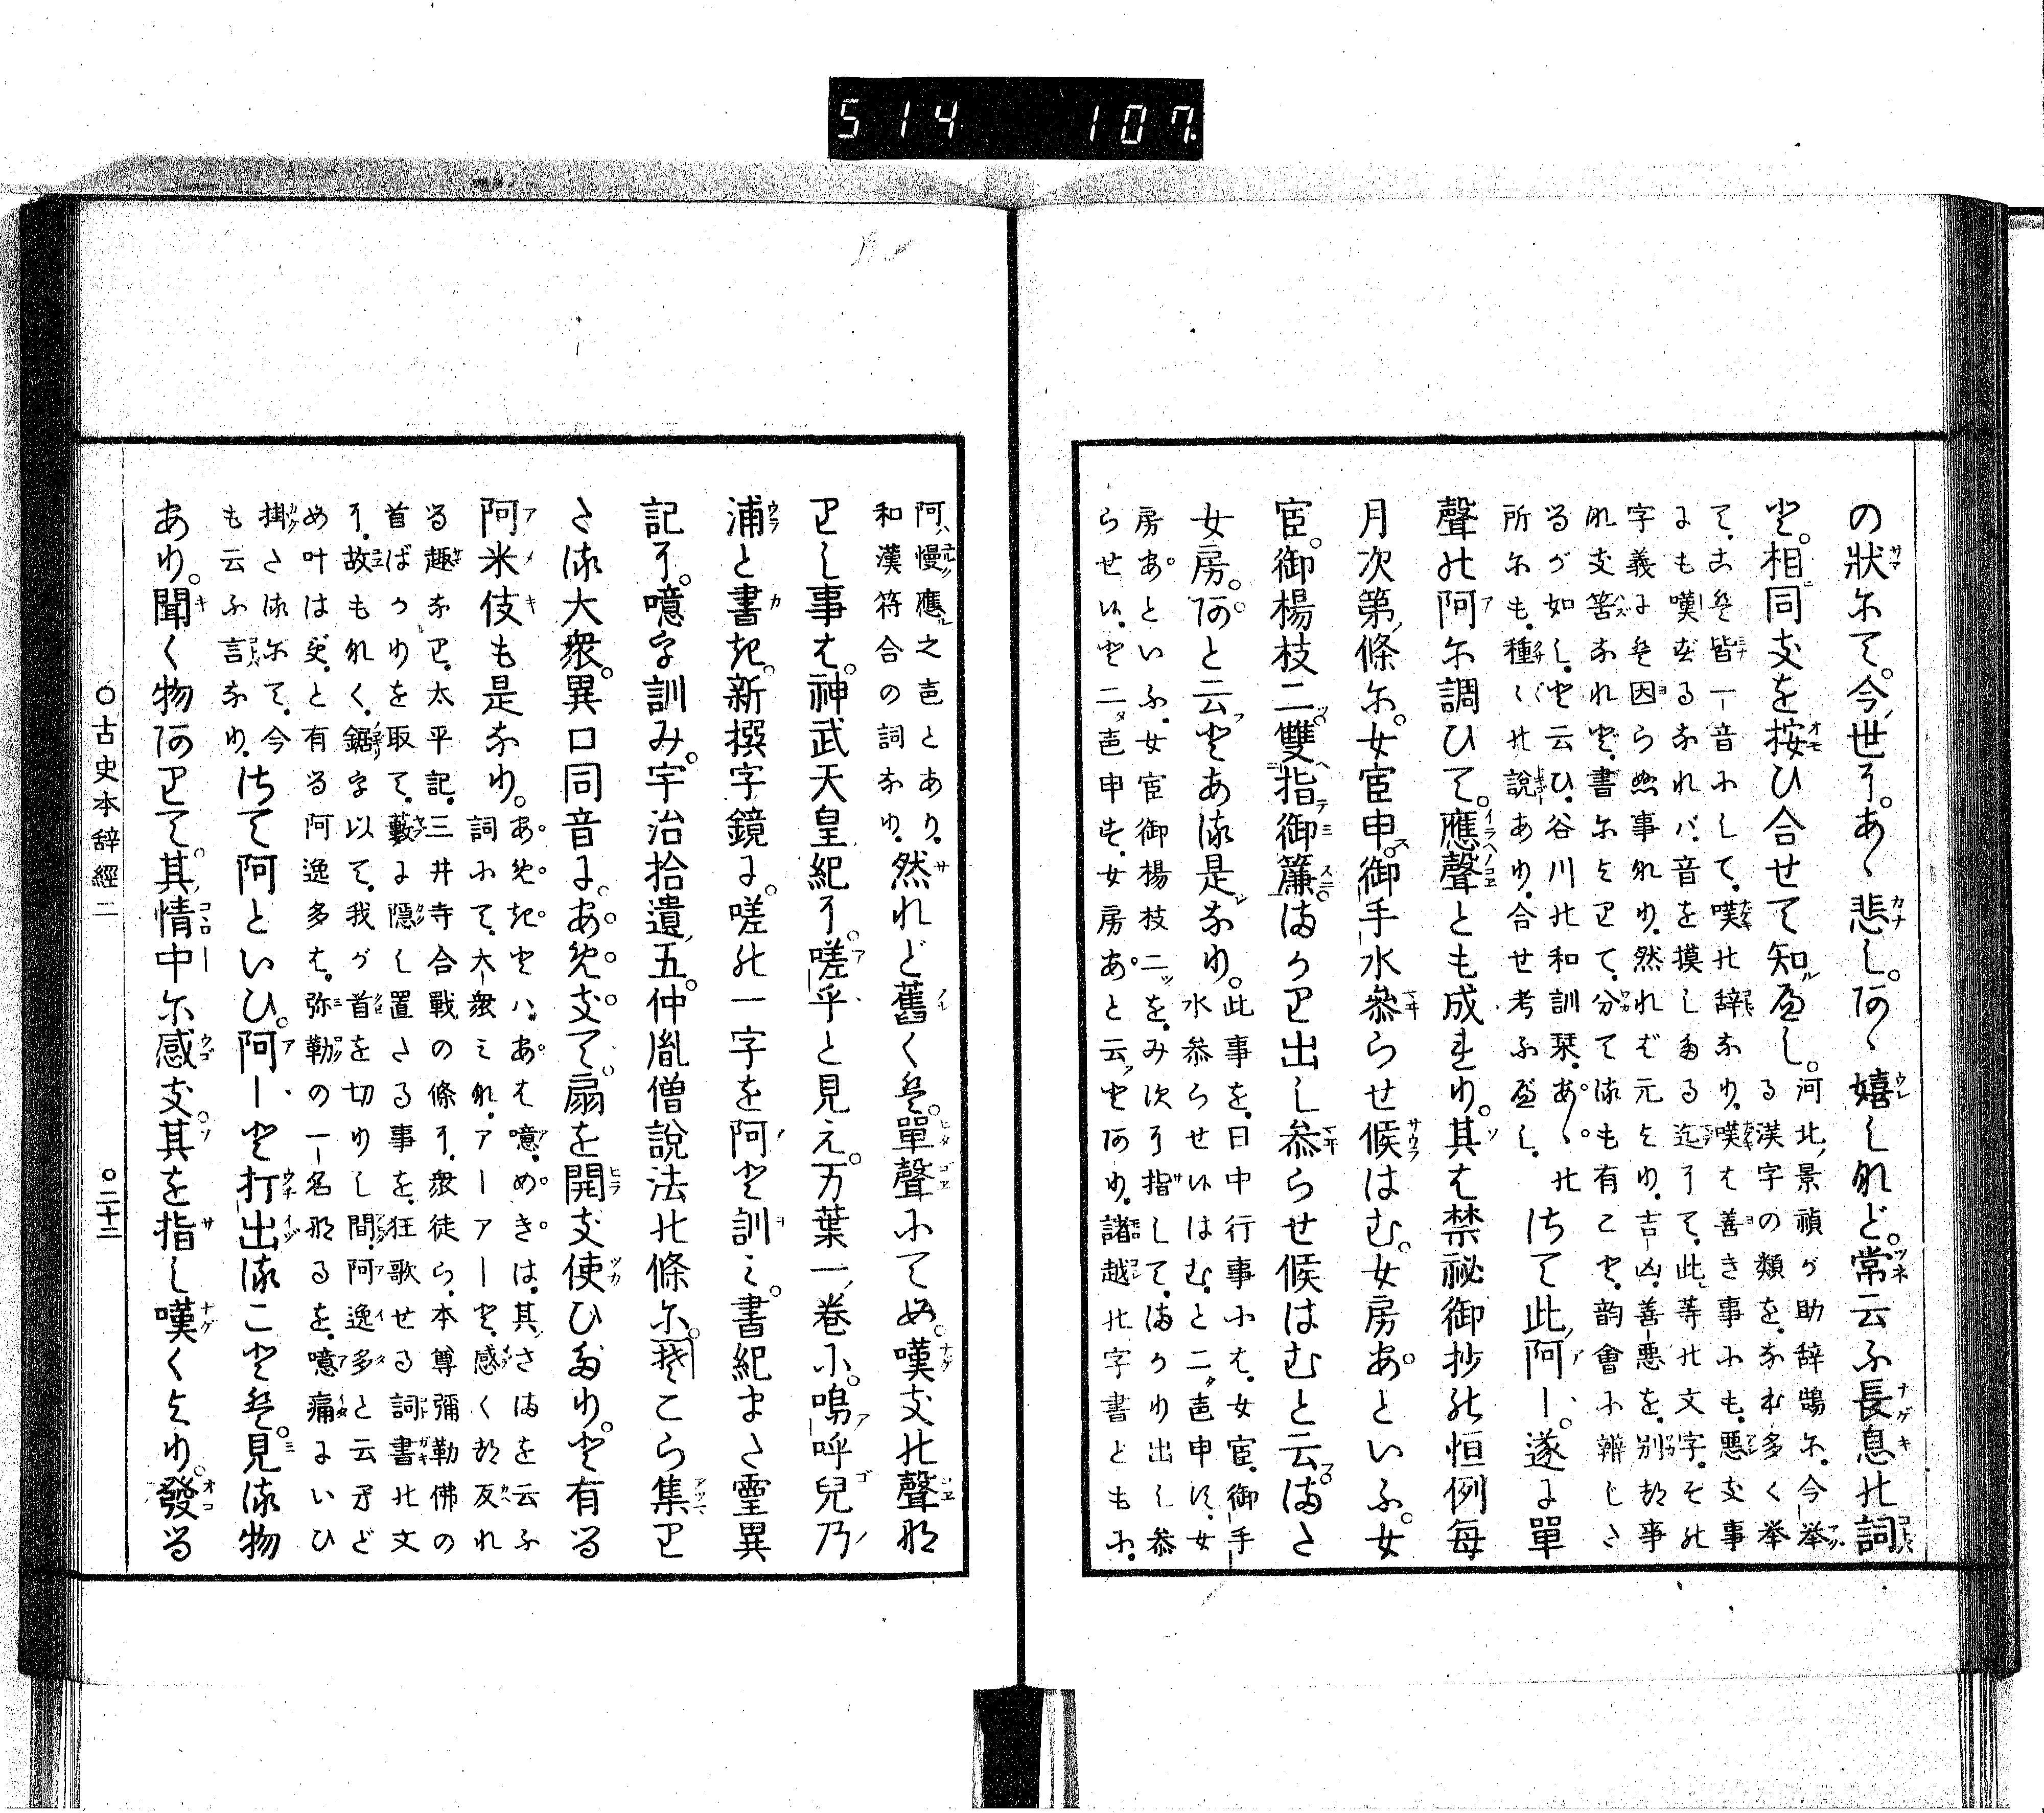 514 107
の狀にて。今世に。あゝ悲し。阿ゝ嬉しれど。常云ふ長息の詞
と。相同きを按ひ合せて知べし。
河北景禎が助辞鵠に。今擧
る漢字の類を。なほ多く挙
て。こは皆一音にして。嘆の辞なり。嘆は善き事にも。悪き事
にも嘆ずるなれバ。音を摸したる迄にて。此等の文字。その
字義には因らぬ事なり。然れど元より。吉凶。善悪を。別る事
なき筈なれど。書によりて。分ても有こと。韵會に辨じさ
るが如し。と云ひ。谷川の和訓栞。あゝの
所にも。種々の說あり。合せ考ふべし。
さて此阿ー。遂に單
聲の阿に調ひて。應聲とも成れり。其は禁祕御抄の恒例每
月次第條に。女官申御手水參らせ候はむ。女房あといふ。女
官。御楊枝二雙指御簾まかり出し參らせ候はむと云。また
女房。阿と云とある是なり。
此事を。日中行事には。女官。御手
水參らせ候はむ。と二聲申に。女
房あといふ。女官御楊枝二ツを。み次に指して。まかり出し參
らせ候。と二聲申す。女房あと云とあり。諸越の字書どもに。
阿ハ慢應之聲とあり。
和漢符合の詞なり。
然れど舊くは。單聲にてぬ。嘆きの聲な
りし事は。神武天皇紀に。嗟乎と見え。万葉一卷に。鳴呼兒乃
浦と書き。新撰字鏡に。嗟の一字を阿と訓ミ。書紀また霊異
記に。噫字訓み。宇治拾遺五。仲胤僧說法の條に。そこら集り
さる大衆。異口同音に。あめきて。扇を開き使ひたり。と有る
阿米伎も是なり。
あめきとハ。あは噫。めきは。其さまを云ふ
詞にて。大衆ミな。アーアーと。感く却反れ
る趣なり。太平記。三井寺合戰の條に。衆徒ら。本尊彌勒佛の
首ばかりを取て。藪に隱し置さる事を。狂歌せる詞書の文
に。故もなく。鋸字以て。我が首を切りし間。阿逸多と云ひど
め叶はず。と有る阿逸多は。弥勒の一名なるを。噫痛にいひ
掛さるにて。今
も云ふ言なり。
さて阿といひ。阿ー。と打出ることは。見る物
あり。聞く物阿りて。其情中に感き其を指し嘆くより。發る
○古史本辞經二 ○二十二